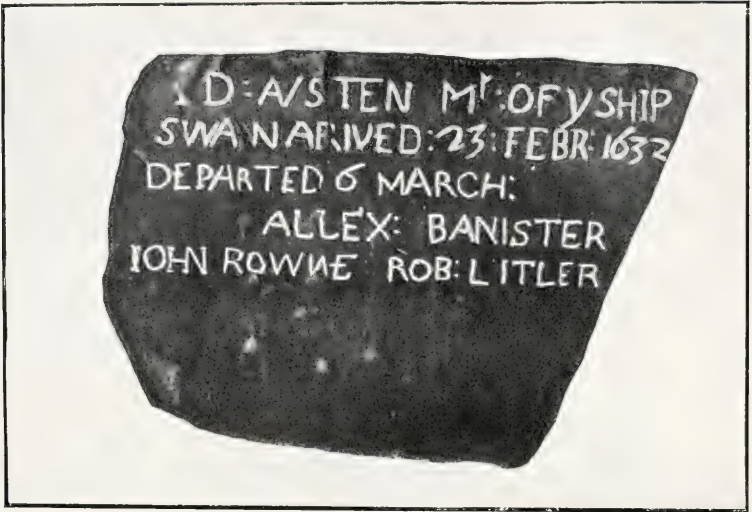 D:AVSTEN Mr:OF Y SHIP
SWAN ARIVED:23:FEBR:1632
DEPARTED 6 MARCH:
ALLEX: BANISTER
IOHN ROWNE ROB:LITLER